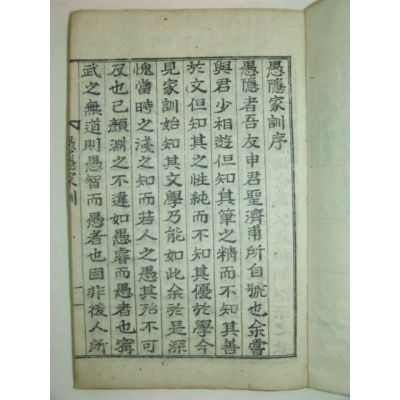 愚隱家訓序
愚隱者吾友申君聖濟甫所自號也余嘗
與君少相遊但知其筆之精而不知其善
於文但知其之性純而不知其優於學今
見家訓始知其文學乃能如此余於是深
愧當時之淺之知而若人之愚其殆不可
及也已顔淵之不違如愚睿而愚者也甯
武之無道則愚智而愚者也固非後人所
愚隱家訓
一